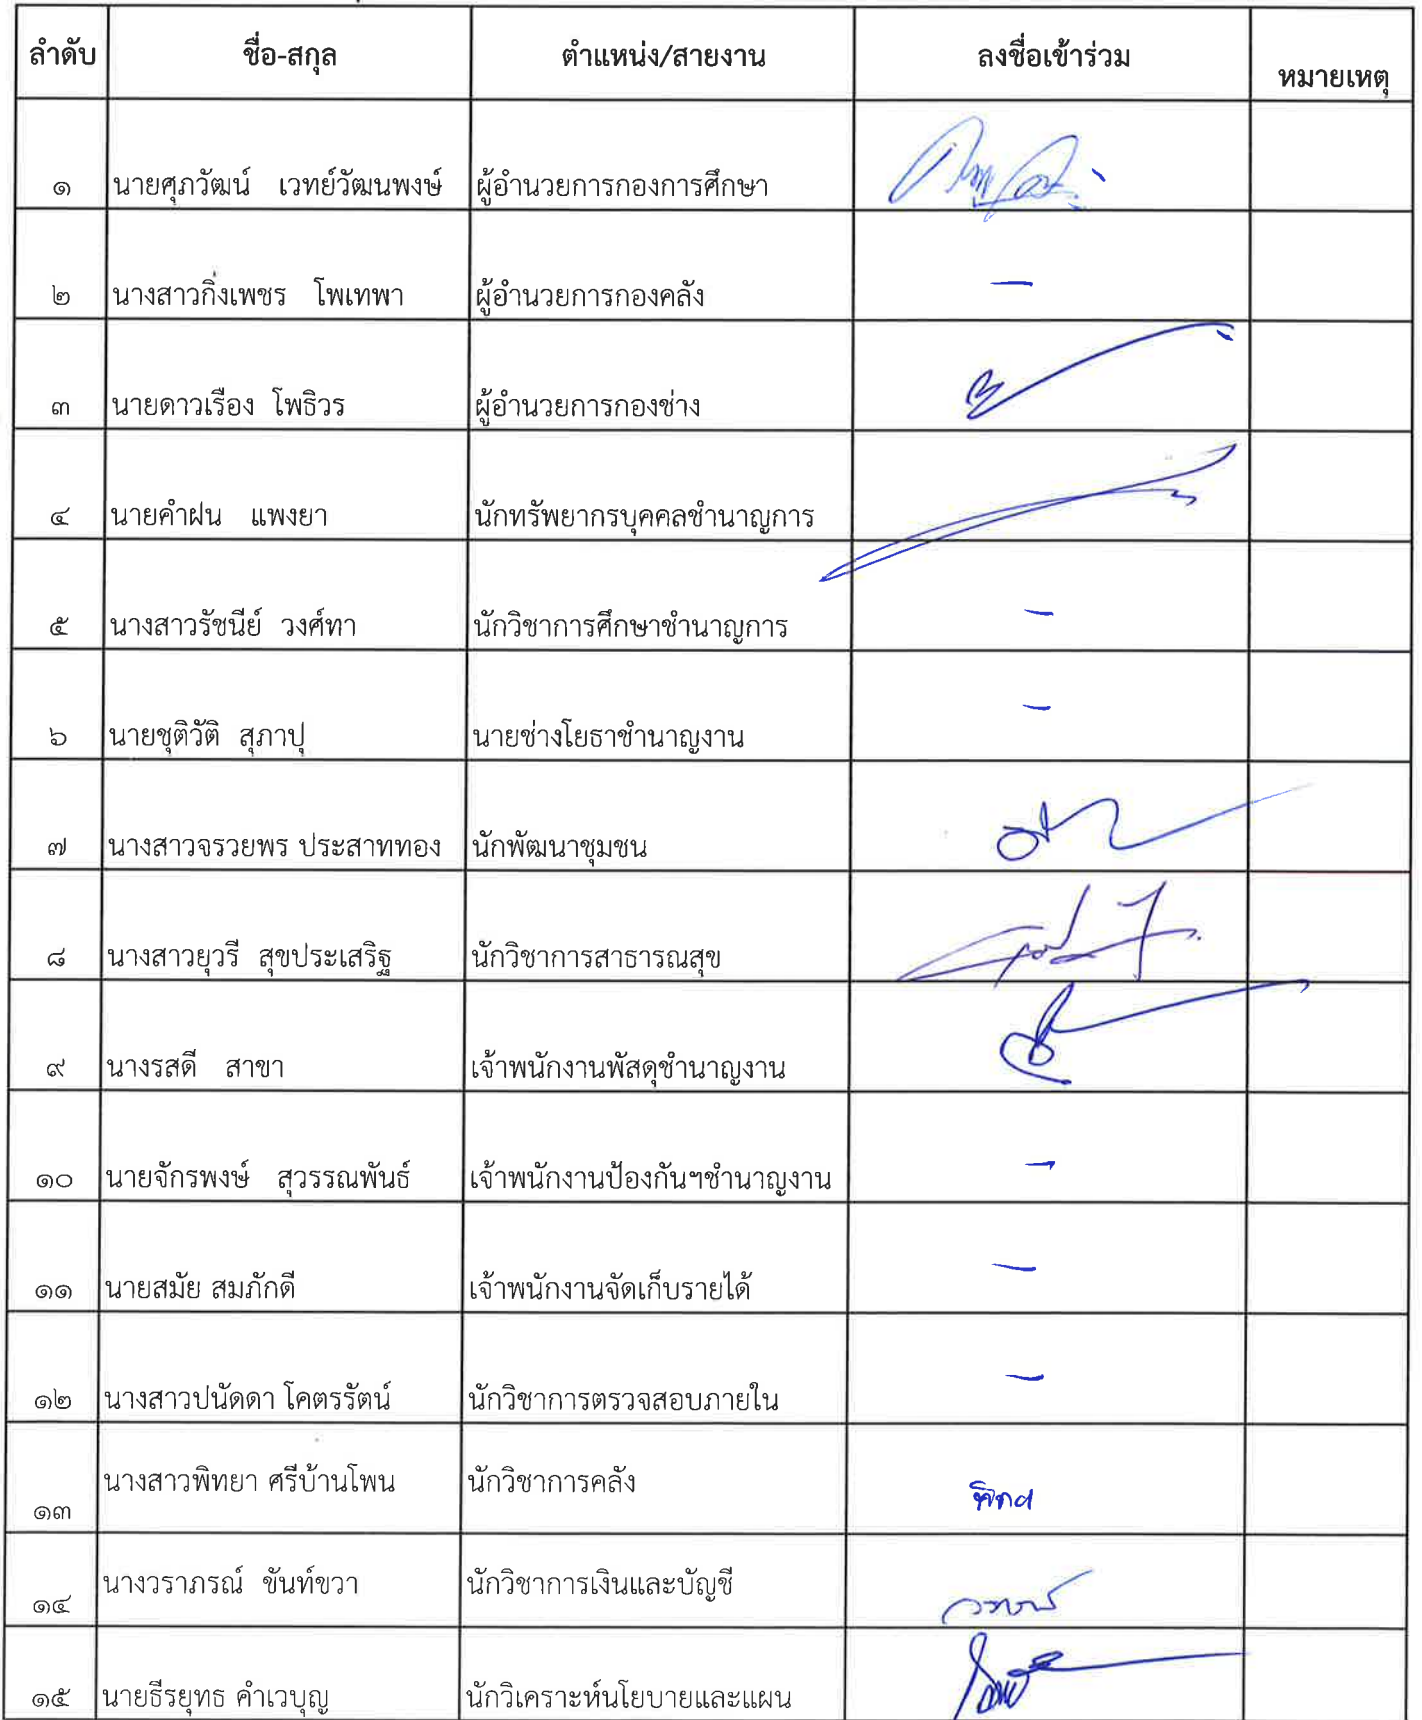 ลำดับ ชื่อ-สกุล ตำแหน่ง/สายงาน ลงชื่อเข้าร่วม หมายเหตุ
๑ นายศุภวัฒน์ เวทย์วัฒนพงษ์ ผู้อำนวยการกองการศึกษา
๒ นางสาวกิ่งเพชร โพเทพา ผู้อำนวยการกองคลัง —
๓ นายดาวเรือง โพธิวร ผู้อำนวยการกองช่าง
๔ นายคำฝน แพงยา นักทรัพยากรบุคคลชำนาญการ
๕ นางสาวรัชนีย์ วงศ์ทา นักวิชาการศึกษาชำนาญการ —
๖ นายชุติวัติ สุภาปุ นายช่างโยธาชำนาญงาน —
๗ นางสาวจรวยพร ประสาททอง นักพัฒนาชุมชน
๘ นางสาวยุวรี สุขประเสริฐ นักวิชาการสาธารณสุข
๙ นางรสดี สาขา เจ้าพนักงานพัสดุชำนาญงาน
๑๐ นายจักรพงษ์ สุวรรณพันธ์ เจ้าพนักงานป้องกันฯชำนาญงาน —
๑๑ นายสมัย สมภักดี เจ้าพนักงานจัดเก็บรายได้ —
๑๒ นางสาวปนัดดา โคตรรัตน์ นักวิชาการตรวจสอบภายใน —
๑๓ นางสาวพิทยา ศรีบ้านโพน นักวิชาการคลัง พิทยา
๑๔ นางวราภรณ์ ขันท์ขวา นักวิชาการเงินและบัญชี วราภรณ์
๑๕ นายธีรยุทธ คำเวบุญ นักวิเคราะห์นโยบายและแผน